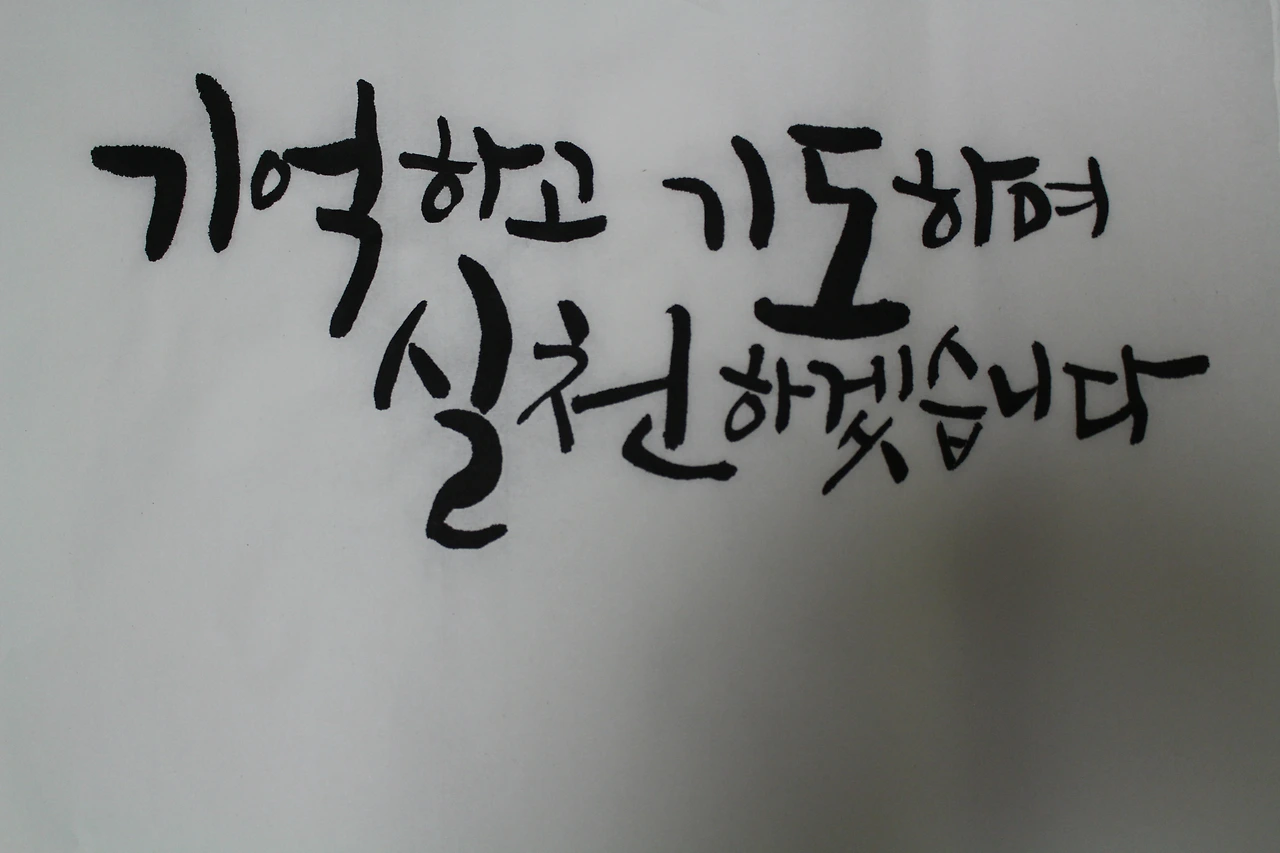 기억하고 기도하며
실천하겠습니다